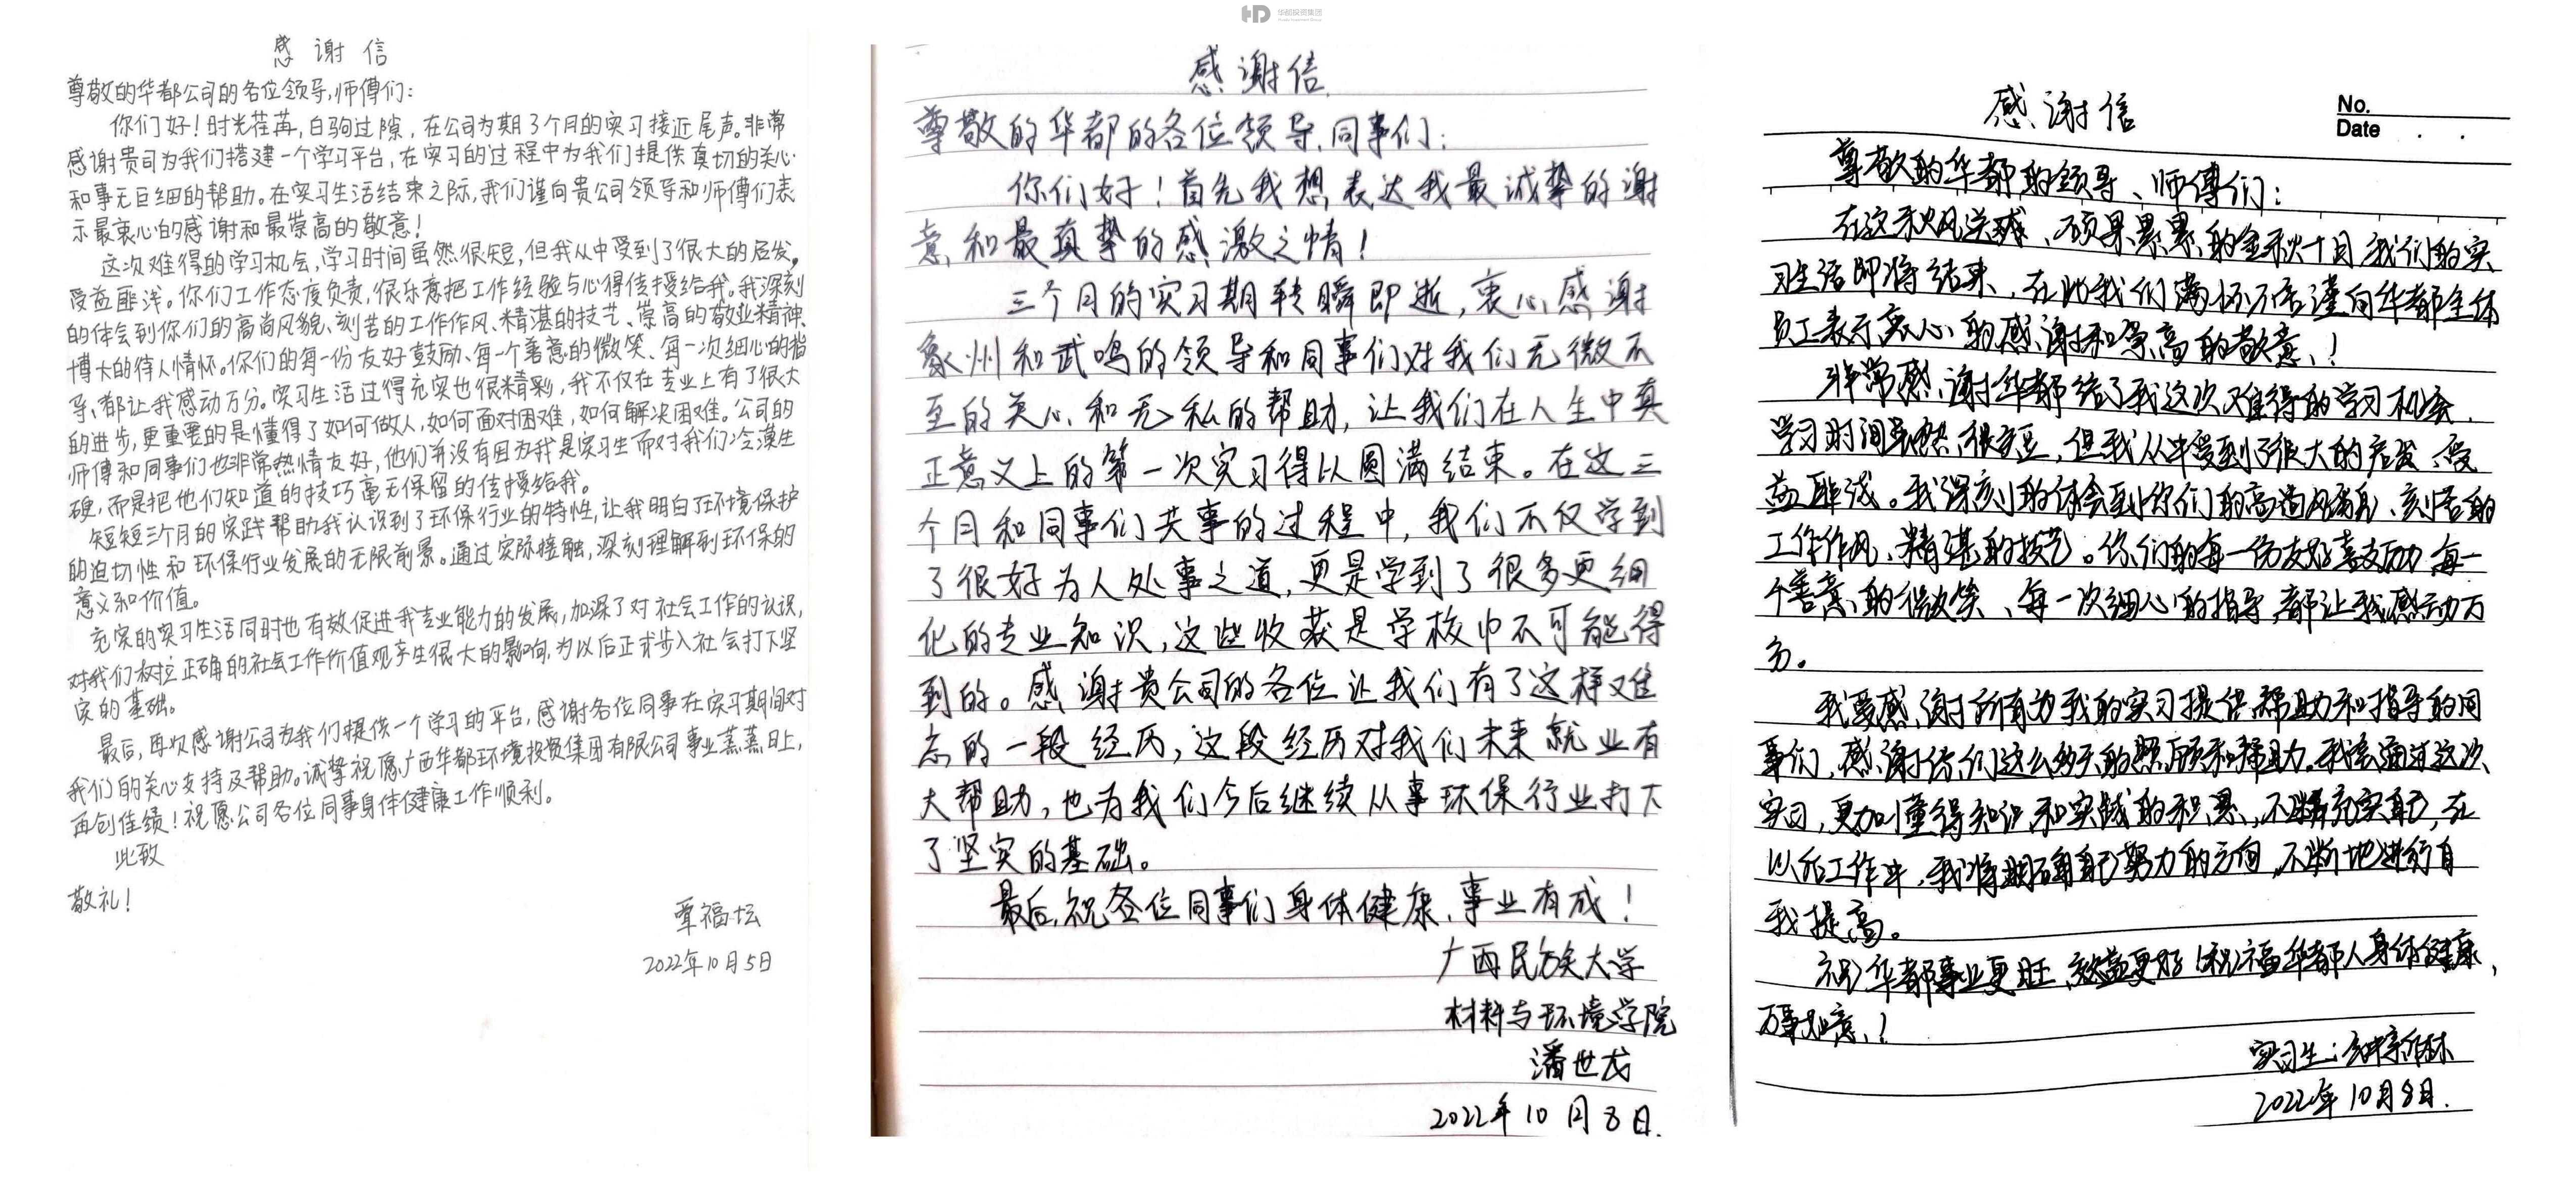 HD 华都投资集团
感谢信
尊敬的华都公司的各位领导,师傅们:
你们好!时光荏苒,白驹过隙,在公司为期3个月的实习接近尾声。非常
感谢贵司为我们搭建一个学习平台,在实习的过程中为我们提供真切的关心
和事无巨细的帮助。在实习生活结束之际,我们谨向贵公司领导和师傅们表
示最衷心的感谢和最崇高的敬意!
这次难得的学习机会,学习时间虽然很短,但我从中受到了很大的启发,
受益匪浅。你们工作态度负责,很乐意把工作经验与心得传授给我。我深刻
的体会到你们的高尚风貌、刻苦的工作作风、精湛的技艺、崇高的敬业精神、
博大的待人情怀。你们的每一份友好鼓励、每一个善意的微笑、每一次细心的指
导,都让我感动万分。实习生活过得充实也很精彩,我不仅在专业上有了很大
的进步,更重要的是懂得了如何做人,如何面对困难,如何解决困难。公司的
师傅和同事们也非常热情友好,他们并没有因为我是实习生而对我们冷漠生
硬,而是把他们知道的技巧毫无保留的传授给我。
短短三个月的实践帮助我认识到了环保行业的特性,让我明白了环境保护
的迫切性和环保行业发展的无限前景。通过实际接触,深刻理解到环保的
意义和价值。
充实的实习生活同时也有效促进我专业能力的发展,加深了对社会工作的认识,
对我们树立正确的社会工作价值观产生很大的影响,为以后正式步入社会打下坚
实的基础。
最后,再次感谢公司为我们提供一个学习的平台,感谢各位同事在实习期间对
我们的关心支持及帮助。诚挚祝愿广西华都环境投资集团有限公司事业蒸蒸日上,
再创佳绩!祝愿公司各位同事身体健康工作顺利。
此致
敬礼!
覃福坛
2022年10月5日
感谢信
尊敬的华都的各位领导、同事们:
你们好!首先我想表达我最诚挚的谢
意和最真挚的感激之情!
三个月的实习期转瞬即逝,衷心感谢
象州和武鸣的领导和同事们对我们无微不
至的关心和无私的帮助,让我们在人生中真
正意义上的第一次实习得以圆满结束。在这三
个月和同事们共事的过程中,我们不仅学到
了很好为人处事之道,更是学到了很多更细
化的专业知识,这些收获是学校中不可能得
到的。感谢贵公司的各位让我们有了这样难
忘的一段经历,这段经历对我们未来就业有
大帮助,也为我们今后继续从事环保行业打下
了坚实的基础。
最后,祝各位同事们身体健康、事业有成!
广西民族大学
材料与环境学院
潘世龙
2022年10月8日.
No.
Date . .
感谢信
尊敬的华都的领导、师傅们:
在这秋风送爽、硕果累累的金秋十月我们的实
习生活即将结束,在此我们满怀 谨向华都全体
员工表示衷心的感谢和崇高的敬意!
非常感谢华都给了我这次难得的学习机会,
学习时间虽然很短,但我从中受到了很大的启发、受
益匪浅。我深刻的体会到你们的高尚风貌、刻苦的
工作作风、精湛的技艺。你们的每一份友好鼓励每一
个善意的微笑、每一次细心的指导,都让我感动万
分。
我要感谢所有为我的实习提供帮助和指导的同
事们,感谢你们这么多天的照顾和帮助。我会通过这次
实习,更加懂得知识和实践的积累,不 充实自己,在
以后工作中,我将明确自己努力的方向,不断地进行自
我提高。
祝华都事业更旺、效益更好!祝福华都人身体健康,
万事如意!
实习生:
2022年10月8日.